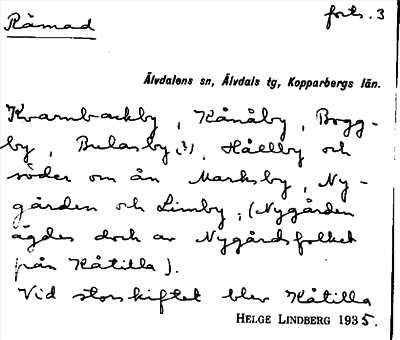 Råmad
forts. 3
Älvdalens sn, Älvdals tg, Kopparbergs län.
Kvarnbackby, Kånåby, Bogg-
by, Bulasby, (?), Hållby och
söder om ån Marksby, Ny-
gården och Limby, (Nygården
ägdes dock av Nygårdsfolket
från Kåtilla).
Vid storskiftet blev Kåtilla
HELGE LINDBERG 1935.